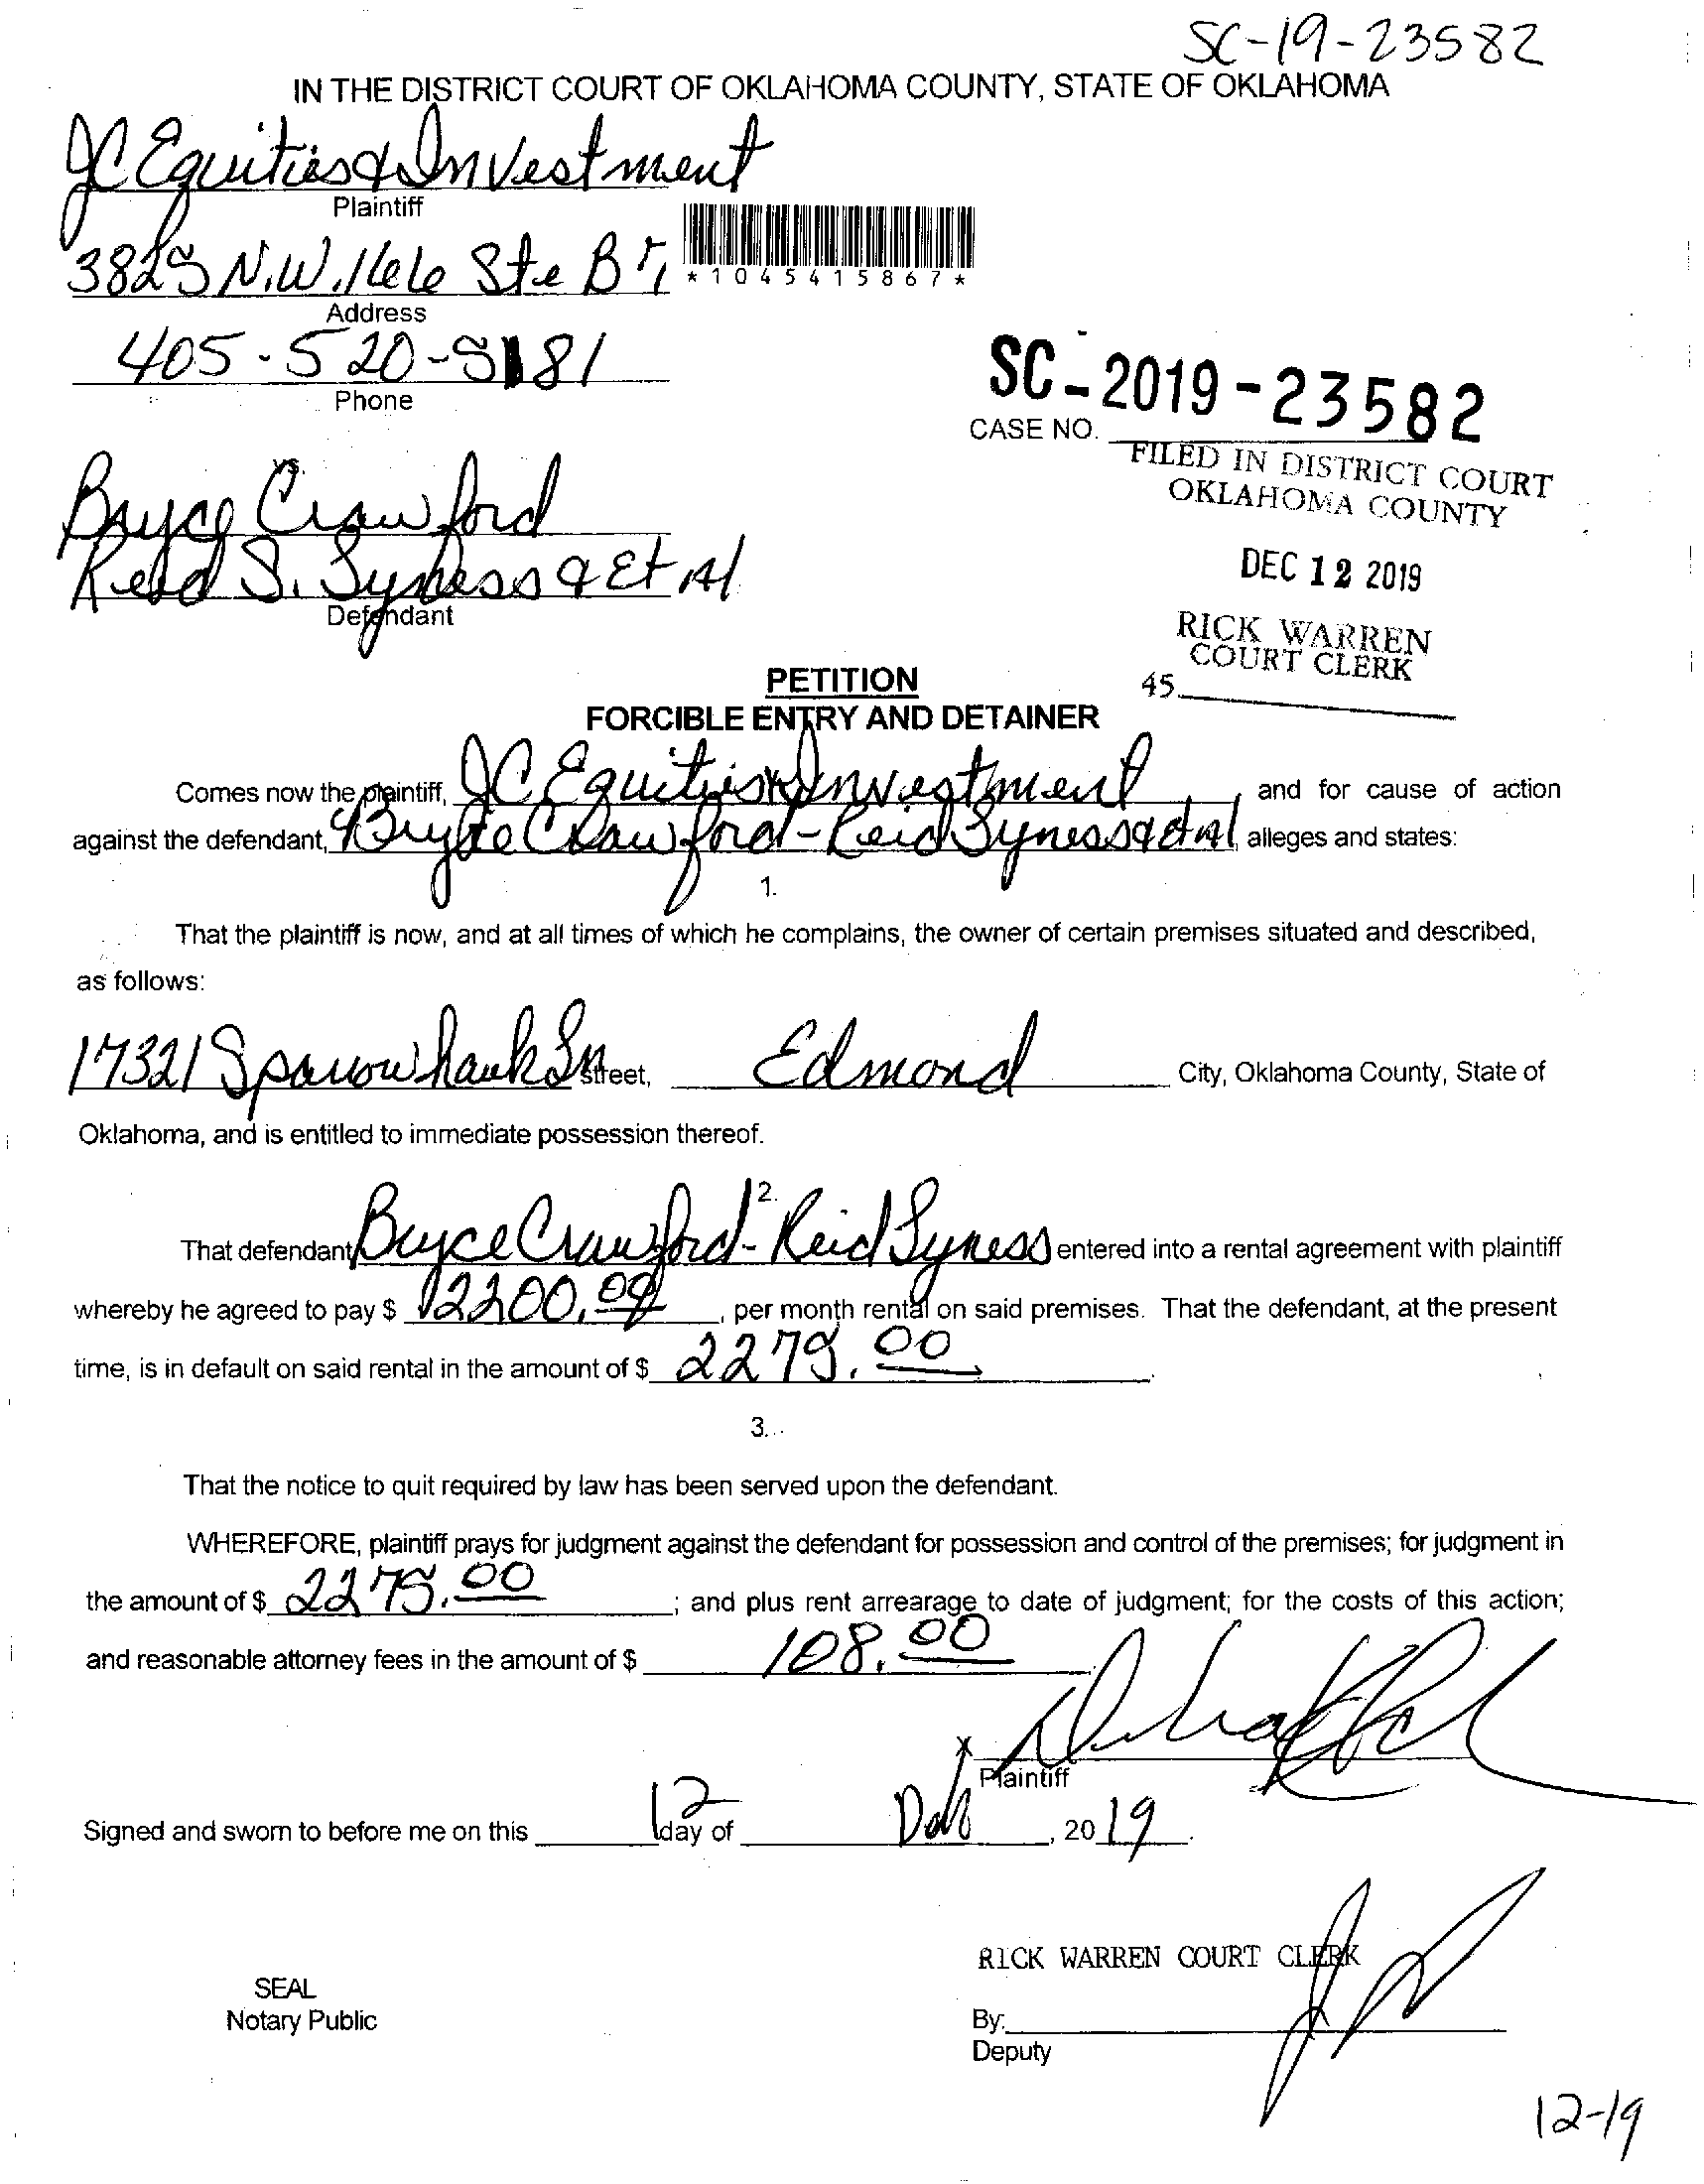 SC-19-23582
IN THE DISTRICT COURT OF OKLAHOMA COUNTY, STATE OF OKLAHOMA
JC Equities & Investment
Plaintiff
3825 N.W. 166 Ste B
*1045415867*
Address
405-520-5181
Phone
SC-2019-23582
CASE NO.
FILED IN DISTRICT COURT
OKLAHOMA COUNTY
vs.
Bryce Crawford
Reid S. Syness & Et Al
Defendant
DEC 12 2019
RICK WARREN
COURT CLERK
45
PETITION
FORCIBLE ENTRY AND DETAINER
Comes now the plaintiff, JC Equities & Investment, and for cause of action
against the defendant, Bryce Crawford - Reid Syness & et al alleges and states:
1.
That the plaintiff is now, and at all times of which he complains, the owner of certain premises situated and described,
as follows:
17321 Sparrowhawk Ln Street, Edmond City, Oklahoma County, State of
Oklahoma, and is entitled to immediate possession thereof.
2.
That defendant Bryce Crawford - Reid Syness entered into a rental agreement with plaintiff
whereby he agreed to pay $ 2200.00, per month rental on said premises. That the defendant, at the present
time, is in default on said rental in the amount of $ 2275.00.
3.
That the notice to quit required by law has been served upon the defendant.
WHEREFORE, plaintiff prays for judgment against the defendant for possession and control of the premises; for judgment in
the amount of $ 2275.00; and plus rent arrearage to date of judgment; for the costs of this action;
and reasonable attorney fees in the amount of $ 108.00.
X
Plaintiff
Signed and sworn to before me on this 12 day of Dec, 2019.
RICK WARREN COURT CLERK
SEAL
Notary Public
By:
Deputy
12-19